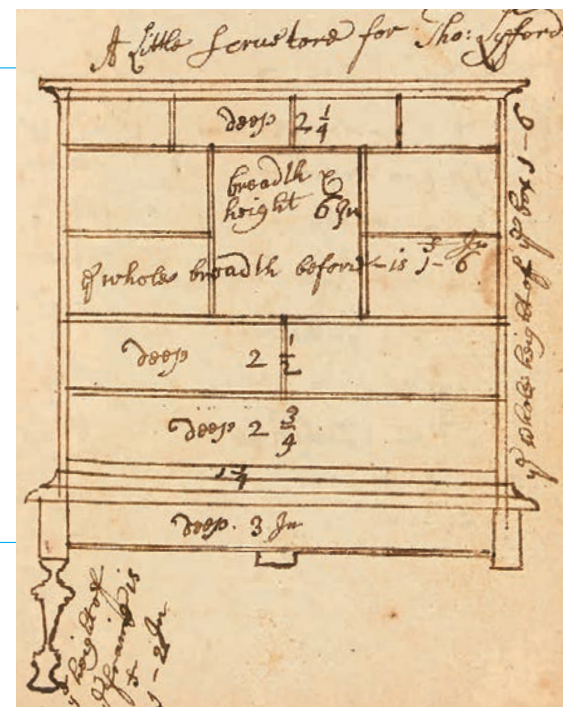 A Little Scruetore for Tho: Tyford
deep 2 1/4
breadth &
height 6 In
f In
ye whole breadth before is 1-6
deep 2 1/2
deep 2 3/4
1 1/4
deep. 3 In
ye whole height of ye box 1-6
ye height of
ye frame is
f In
1-2